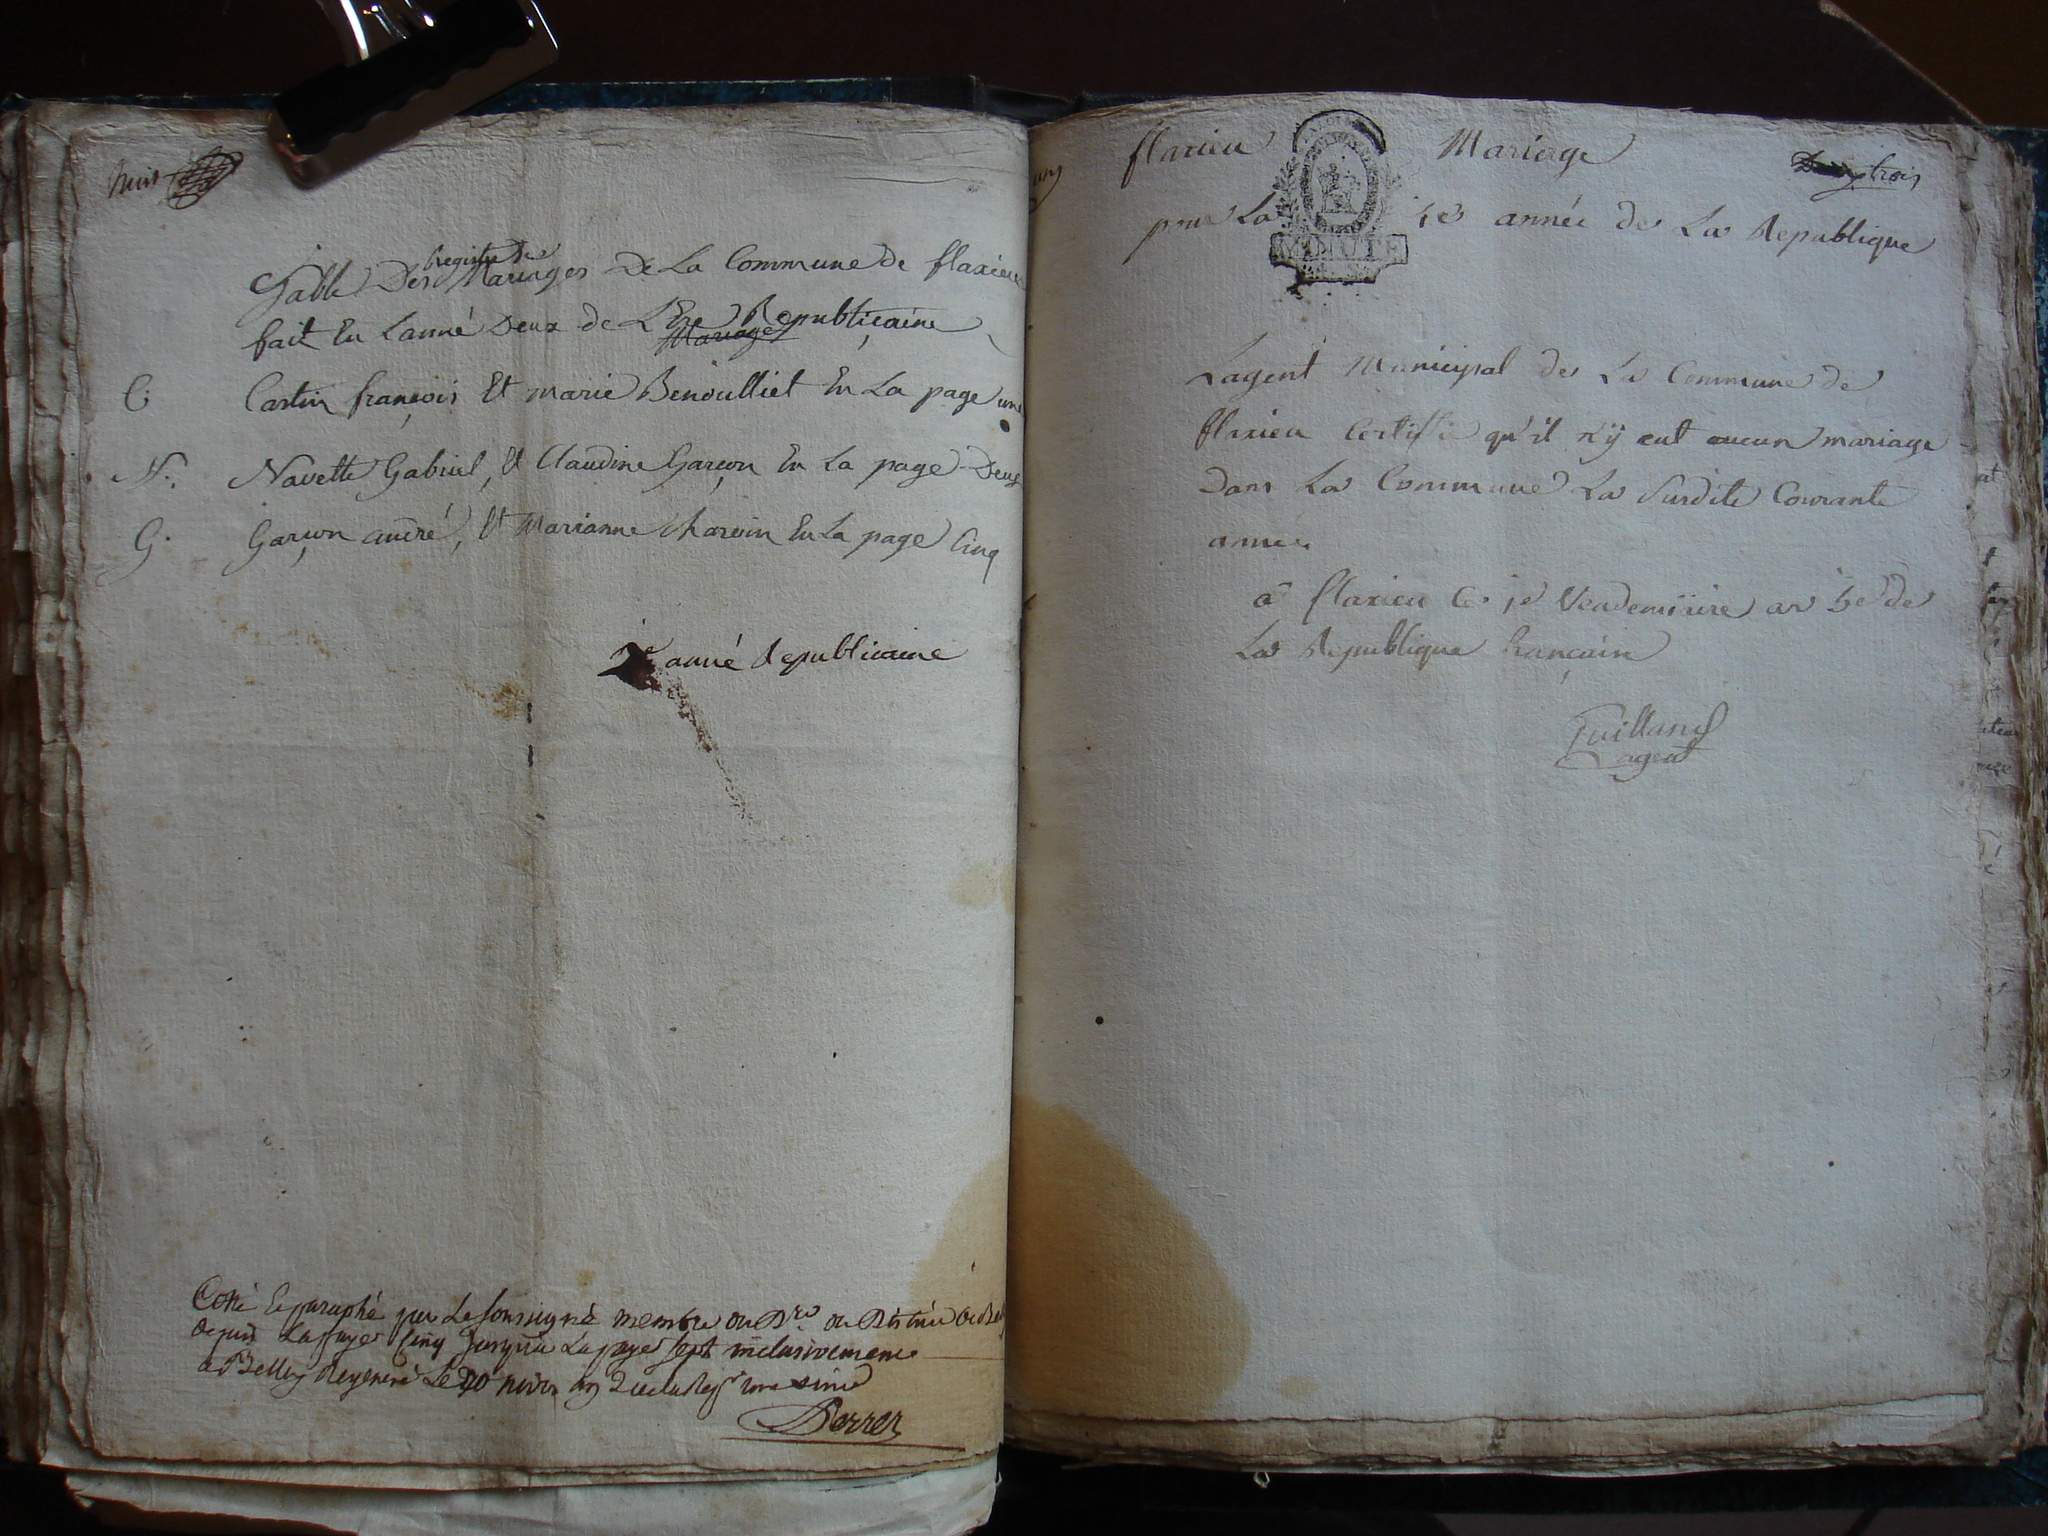 huit
Table Des Registre de Mariages De La Commune de flaxieu
fait En Lanné Deux de L'Ere Republicaine
Mariages
C. Castin françois Et marie Benoulliet En La page une
N. Navette Gabriel, Et Claudine Garçon En La page Deux
G. Garçon andré, Et Marianne charvin En La page Cinq
2e anné Republicaine
Cotté Et paraphé par Le soussigné membre du Dre du District de Bel
depuis La page Cinq Jusqu'a La page sept inclusivement
a Belley Regeneré Le 20 nivos an 2 de La Rep.
Ferrer
flaxieu Mariage
trois
pour La 5e année de La Republique
MINUTE
Lagent Municipal de La Commune de
flaxieu Certifie qu'il n'ÿ eut aucun mariage
Dans La Commune La Susdite Courante
année
a flaxieu Ce 1er Vendemiaire an 5e de
La Republique francaise
Guilland
Lagent